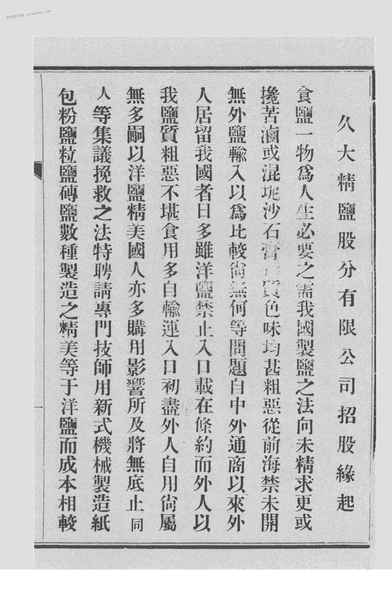 久大精鹽股分有限公司招股緣起
食鹽一物爲人生必要之需我國製鹽之法向未精求更或
攙苦滷或混坭沙石膏色味均甚粗惡從前海禁未開
無外鹽輸入以爲比較尙無何等問題自中外通商以來外
人居留我國者日多雖洋鹽禁止入口載在條約而外人以
我鹽質粗惡不堪食用多自輸運入口初盡外人自用尙屬
無多嗣以洋鹽精美國人亦多購用影響所及將無底止同
人等集議挽救之法特聘請專門技師用新式機械製造紙
包粉鹽粒鹽磚鹽數種製造之精美等于洋鹽而成本相較